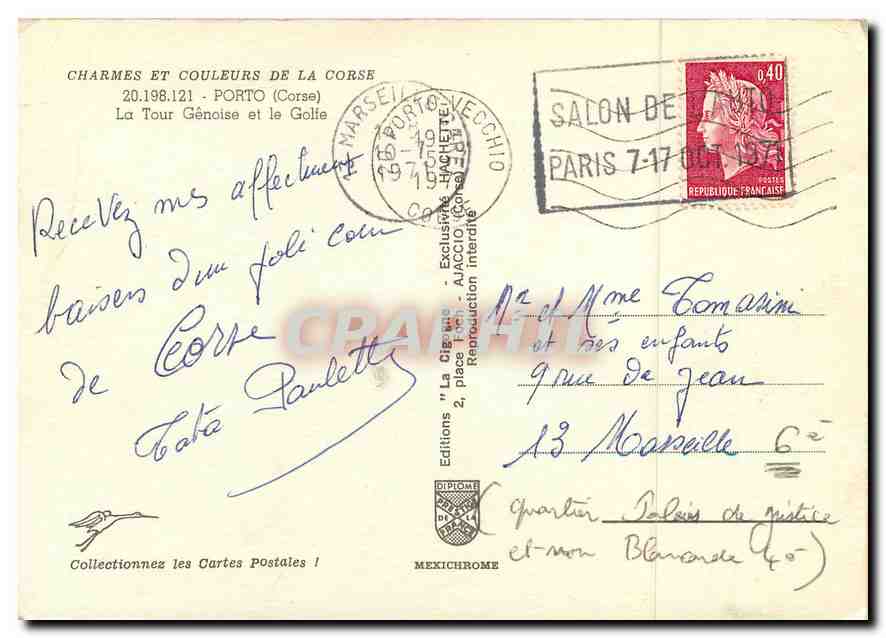 CHARMES ET COULEURS DE LA CORSE
20.198.121 - PORTO (Corse)
La Tour Gênoise et le Golfe
Recevez mes affectueux
baisers d'un joli coin
de Corse
Tata Paulette
Collectionnez les Cartes Postales !
Editions "La Cigogne - Exclusivité HACHETTE
2, place Foch - AJACCIO (Corse)
Reproduction interdite
DIPLOME
PRESTIGE
DE LA
FRANCE
MEXICHROME
MARSEILLE
PORTO-VECCHIO
SALON DE L'AUTO
PARIS 7-17 OCT. 1971
0,40
POSTES
REPUBLIQUE FRANÇAISE
Mr et Mme Tomasini
et ses enfants
9 rue de Jean
13 Marseille 6è
(quartier Palais de justice
et non Blancarde 4è)
CPARHIE